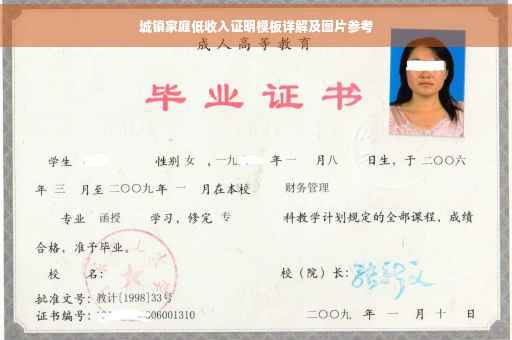 城镇家庭低收入证明模板详解及图片参考
成人高等教育
毕业证书
学生 性别 女 ，一九 年 一 月八 日生，于 二〇〇六
年 三 月至 二〇〇九 年 一 月在本校 财务管理
专业 函授 学习，修完 专 科教学计划规定的全部课程，成绩
合格，准予毕业。
校 名： 校（院）长：
批准文号：教计[1998]33号
证书编号： 06001310 二〇〇九 年 一 月 十 日